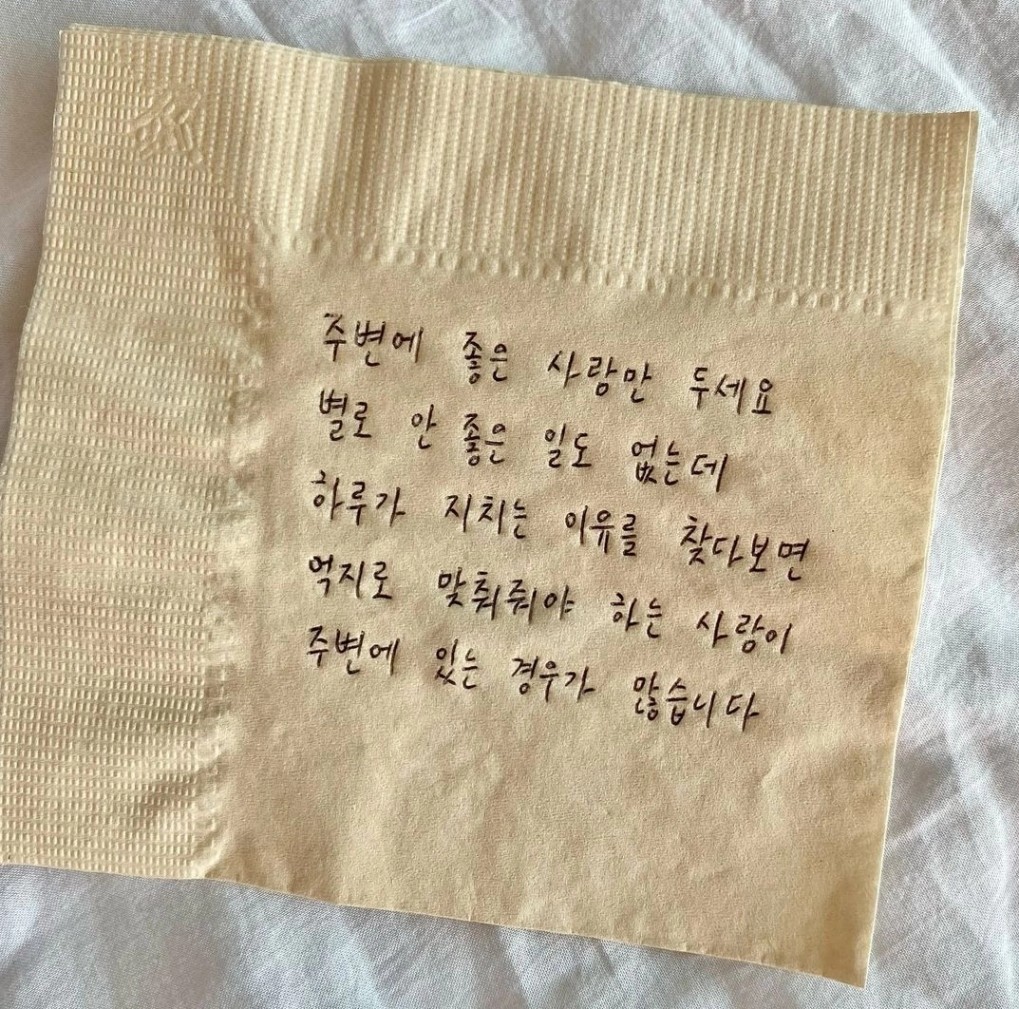 주변에 좋은 사람만 두세요
별로 안 좋은 일도 없는데
하루가 지치는 이유를 찾다보면
억지로 맞춰줘야 하는 사람이
주변에 있는 경우가 많습니다